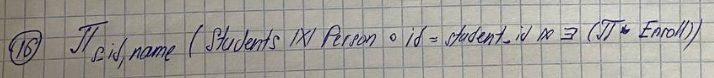 (16) Π sid, name (Students ⋈ Person ∘ id = student_id ⋈ ∃ (Π * Enroll))